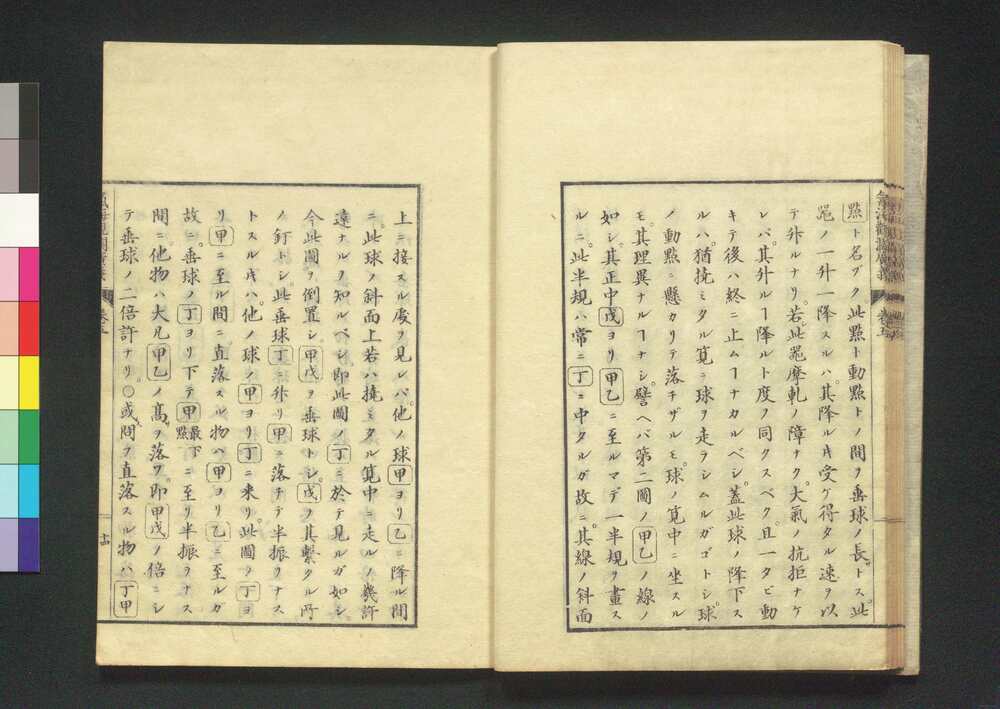 點ト名ヅク此點ト動點トノ間ヲ垂球ノ長トス此
器ノ一升一降スルハ其降ル片受ケ得タル速ヲ以
テ升ルナリ若此器摩軋ノ障ナク大氣ノ抗拒ナケ
レバ其升ルヿ降ルト度ノ同クスベク且一タビ動
キテ後ハ終ニ止ムヿナカルベシ蓋此球ノ降下ス
ルハ猶撓ミタル筧ニ球ヲ走ラシムルガゴトシ球
ノ動點ニ懸カリテ落チザルモ球ノ筧中ニ坐スル
モ其理異ナルヿナシ譬ヘバ第二圖ノ甲乙ノ線ノ
如シ其正中戊ヨリ甲乙ニ至ルマデ一半規ヲ畫ス
ルニ此半規ハ常ニ丁ニ中タルガ故ニ其線ノ斜面
上ニ接スル處ヲ見レバ他ノ球甲ヨリ乙ニ降ル間
ニ此球ノ斜面上若ハ撓ミタル筧中ニ走ルノ幾許
遠ナルヲ知ルベシ即此圖ノ丁ニ於テ見ルガ如シ
今此圖ヲ倒置シ甲戊ヲ垂球トシ戊ヲ其繋タル所
ノ釘トシ此垂球丁ニ升リ甲ニ落チテ半振ヲナス
トスル片ハ他ノ球ノ甲ヨリ丁ニ來リ此圖ノ丁ヨ
リ甲ニ至ル間ニ直落スル物ハ甲ヨリ乙ニ至ルガ
故ニ垂球ノ丁ヨリ下テ甲最下點ニ至リ半振ヲナス
間ニ他物ハ大凡甲乙ノ高ヲ落ツ即甲戊ノ倍ニシ
テ垂球ノ二倍許ナリ○或問フ直落スル物ハ丁甲
十四